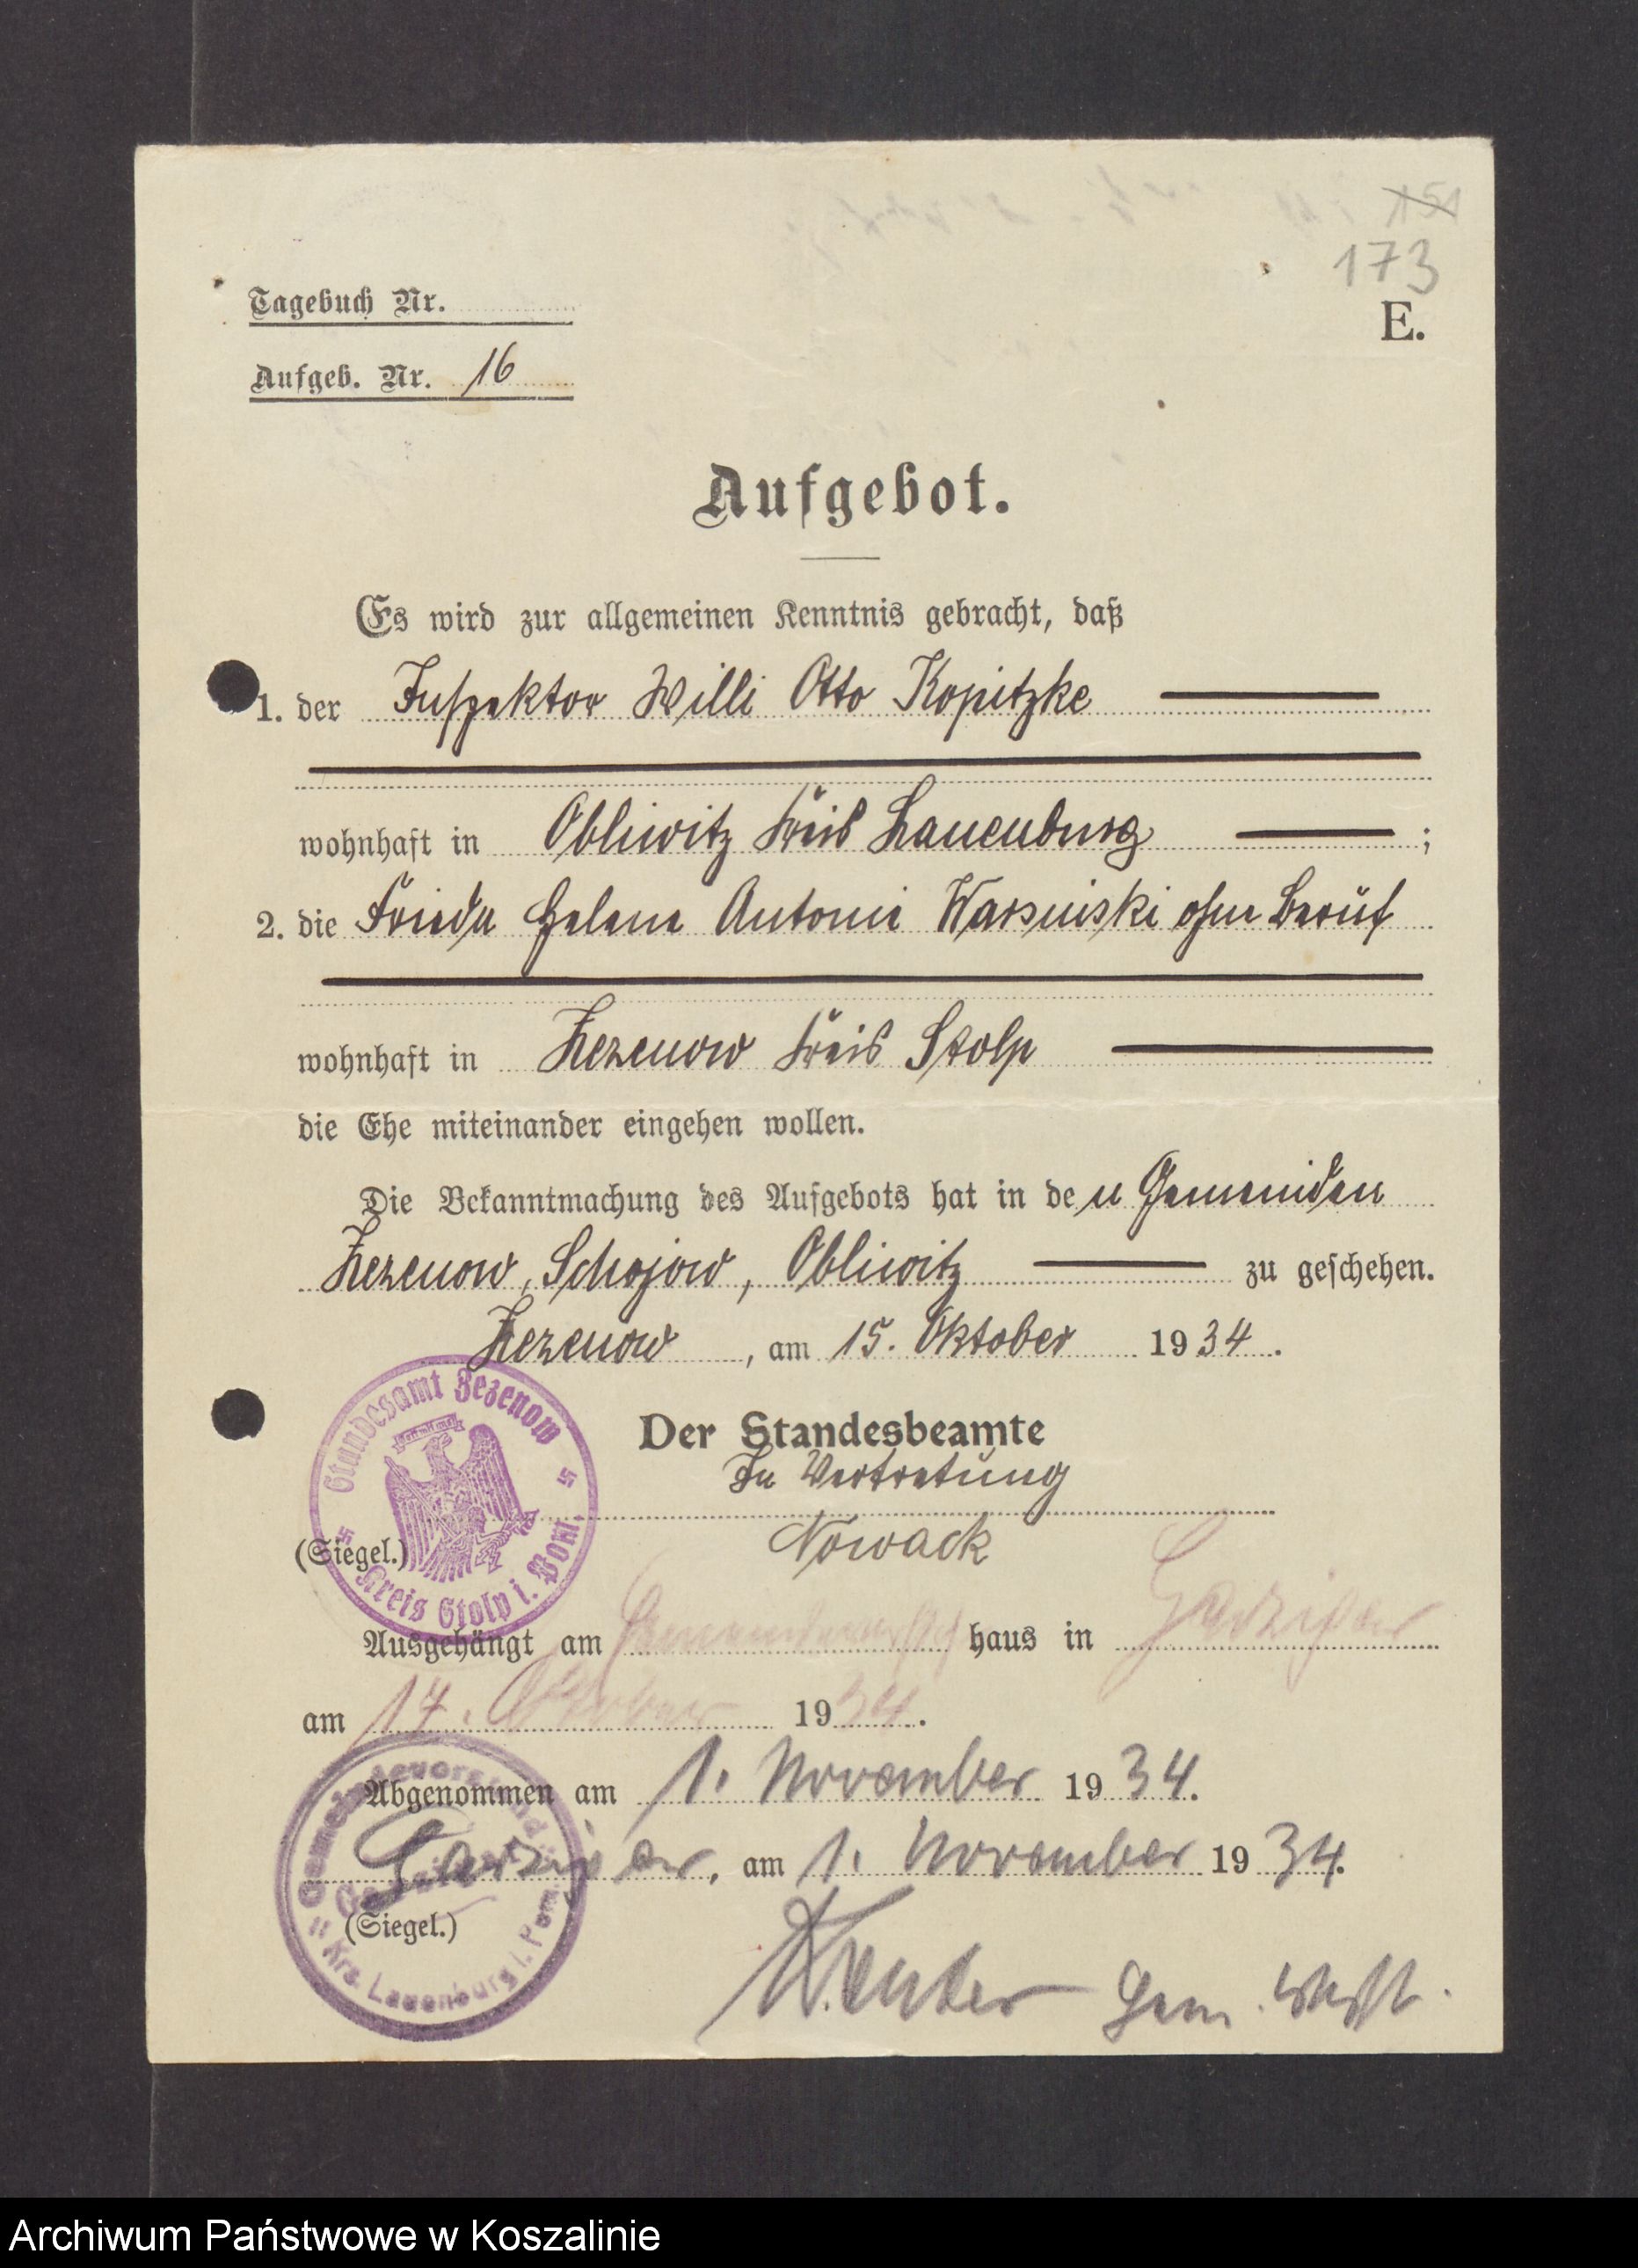 151
173
E.
Tagebuch Nr.
Aufgeb. Nr. 16
Aufgebot.
Es wird zur allgemeinen Kenntnis gebracht, daß
1. der Inspektor Willi Otto Kopitzke
wohnhaft in Obliwitz Kreis Lauenburg ;
2. die Frieda Helene Antonie Warsinski ohne Beruf
wohnhaft in Zezenow Kreis Stolp
die Ehe miteinander eingehen wollen.
Die Bekanntmachung des Aufgebots hat in de n Gemeinden
Zezenow, Schojow, Obliwitz zu geschehen.
Zezenow, am 15. Oktober 1934.
Standesamt Zezenow
Kreis Stolp i. Pom.
Der Standesbeamte
In Vertretung
Nowack
(Siegel.)
Ausgehängt am haus in Garzigar
am 17. Oktober 1934.
Abgenommen am 1. November 1934.
Garzigar, am 1. November 1934.
Gemeindevorstand
Garzigar
Krs. Lauenburg i. Pom.
(Siegel.)
Gem. Vorst.
Archiwum Państwowe w Koszalinie